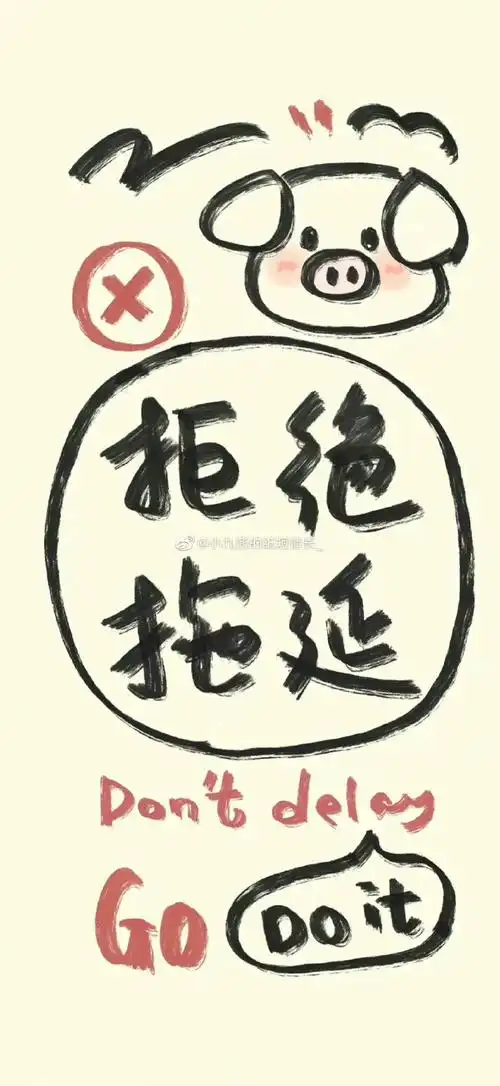 拒绝
拖延
Don't delay
Go Do it